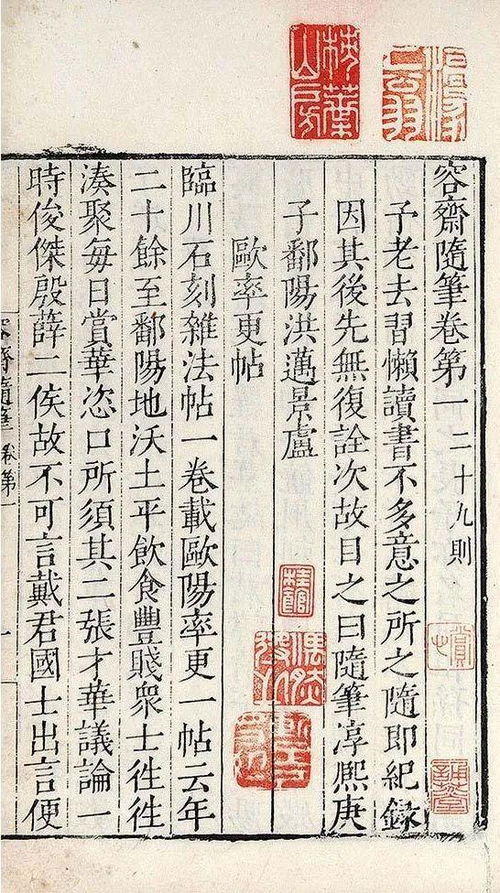 容齋隨筆卷第一 二十九則
予老去習懶讀書不多意之所之隨即紀錄
因其後先無復詮次故目之曰隨筆淳熙庚
子鄱陽洪邁景盧
歐率更帖
臨川石刻雜法帖一卷載歐陽率更一帖云年
二十餘至鄱陽地沃土平飲食豐賤衆士徃徃
湊聚每日賞華恣口所須其二張才華議論一
時俊傑殷薛二侯故不可言戴君國士出言便
容齋隨筆 卷第一
一